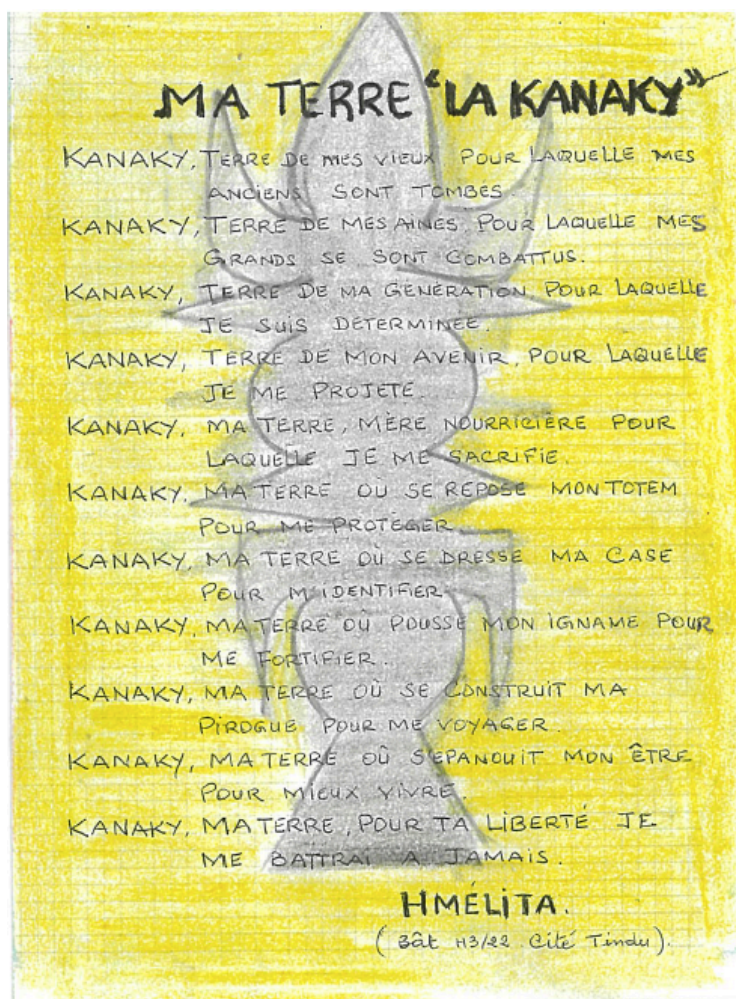 MA TERRE "LA KANAKY"
KANAKY, TERRE DE MES VIEUX POUR LAQUELLE MES
ANCIENS SONT TOMBES.
KANAKY, TERRE DE MES AINES, POUR LAQUELLE MES
GRANDS SE SONT COMBATTUS.
KANAKY, TERRE DE MA GENERATION POUR LAQUELLE
JE SUIS DETERMINEE.
KANAKY, TERRE DE MON AVENIR, POUR LAQUELLE
JE ME PROJETE.
KANAKY, MA TERRE, MÈRE NOURRICIÈRE POUR
LAQUELLE JE ME SACRIFIE.
KANAKY, MA TERRE OÙ SE REPOSE MON TOTEM
POUR ME PROTEGER.
KANAKY, MA TERRE OÙ SE DRESSE MA CASE
POUR M'IDENTIFIER
KANAKY, MA TERRE OÙ POUSSE MON IGNAME POUR
ME FORTIFIER.
KANAKY, MA TERRE OÙ SE CONSTRUIT MA
PIROGUE POUR ME VOYAGER.
KANAKY, MA TERRE OÙ S'EPANOUIT MON ÊTRE
POUR MIEUX VIVRE.
KANAKY, MA TERRE, POUR TA LIBERTÉ JE
ME BATTRAI A JAMAIS.
HMÉLITA.
(Bât H3/22 Cité Tindu).